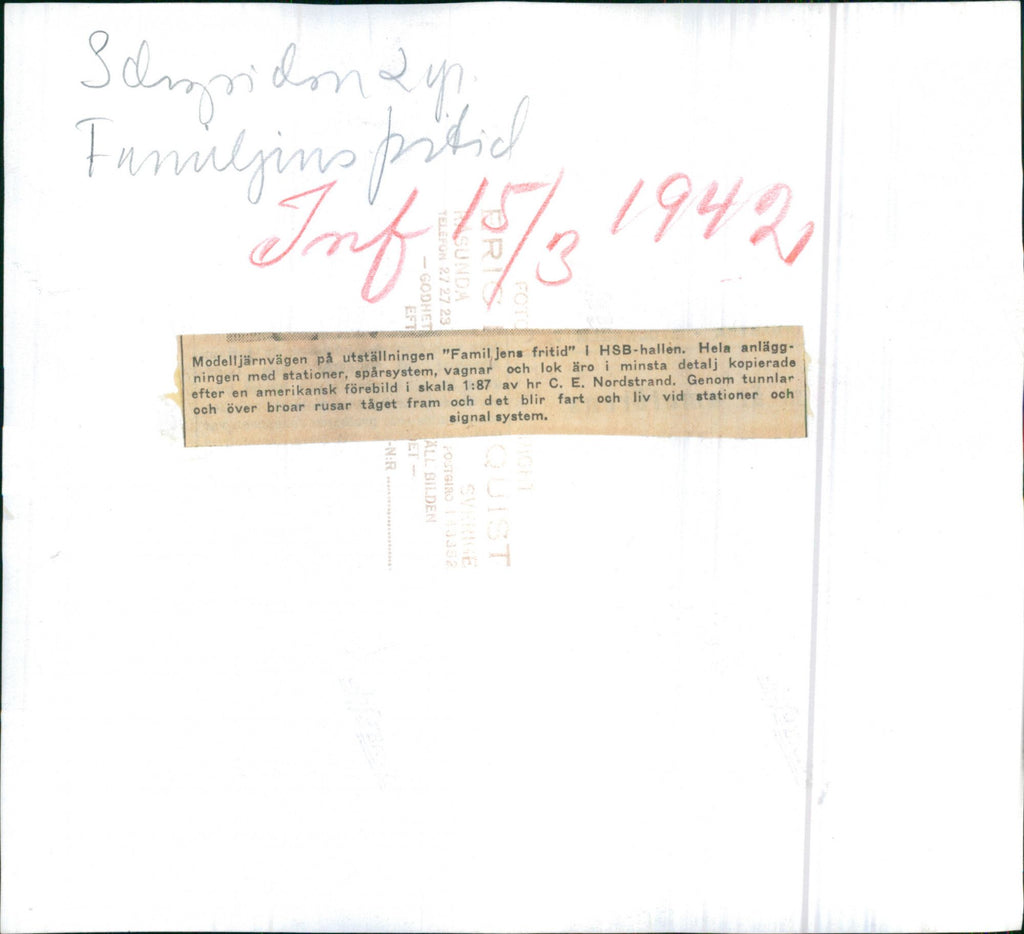 Familjens fritid
Inf 15/3 1942
Modelljärnvägen på utställningen "Familjens fritid" i HSB-hallen. Hela anlägg-
ningen med stationer, spårsystem, vagnar och lok äro i minsta detalj kopierade
efter en amerikansk förebild i skala 1:87 av hr C. E. Nordstrand. Genom tunnlar
och över broar rusar tåget fram och det blir fart och liv vid stationer och
signalsystem.
FOTO
QUIST
RÅSUNDA SVERIGE
TELEFON 27 27 23 POSTGIRO
— GODHET ÄLL BILDEN
EFT ET —
-N:R